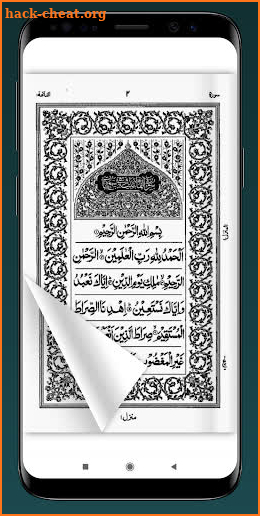 hack-cheat.org
سورۃ ٣ الفاتحة
بِسْمِ اللهِ الرَّحْمٰنِ الرَّحِيْمِ
اَلْحَمْدُ لِلّٰهِ رَبِّ الْعٰلَمِيْنَ الرَّحْمٰنِ
الرَّحِيْمِ مٰلِكِ يَوْمِ الدِّيْنِ اِيَّاكَ نَعْبُدُ
وَاِيَّاكَ نَسْتَعِيْنُ اِهْدِنَا الصِّرَاطَ
الْمُسْتَقِيْمَ صِرَاطَ الَّذِيْنَ
غَيْرِ الْمَغْضُوْبِ
منزل ١